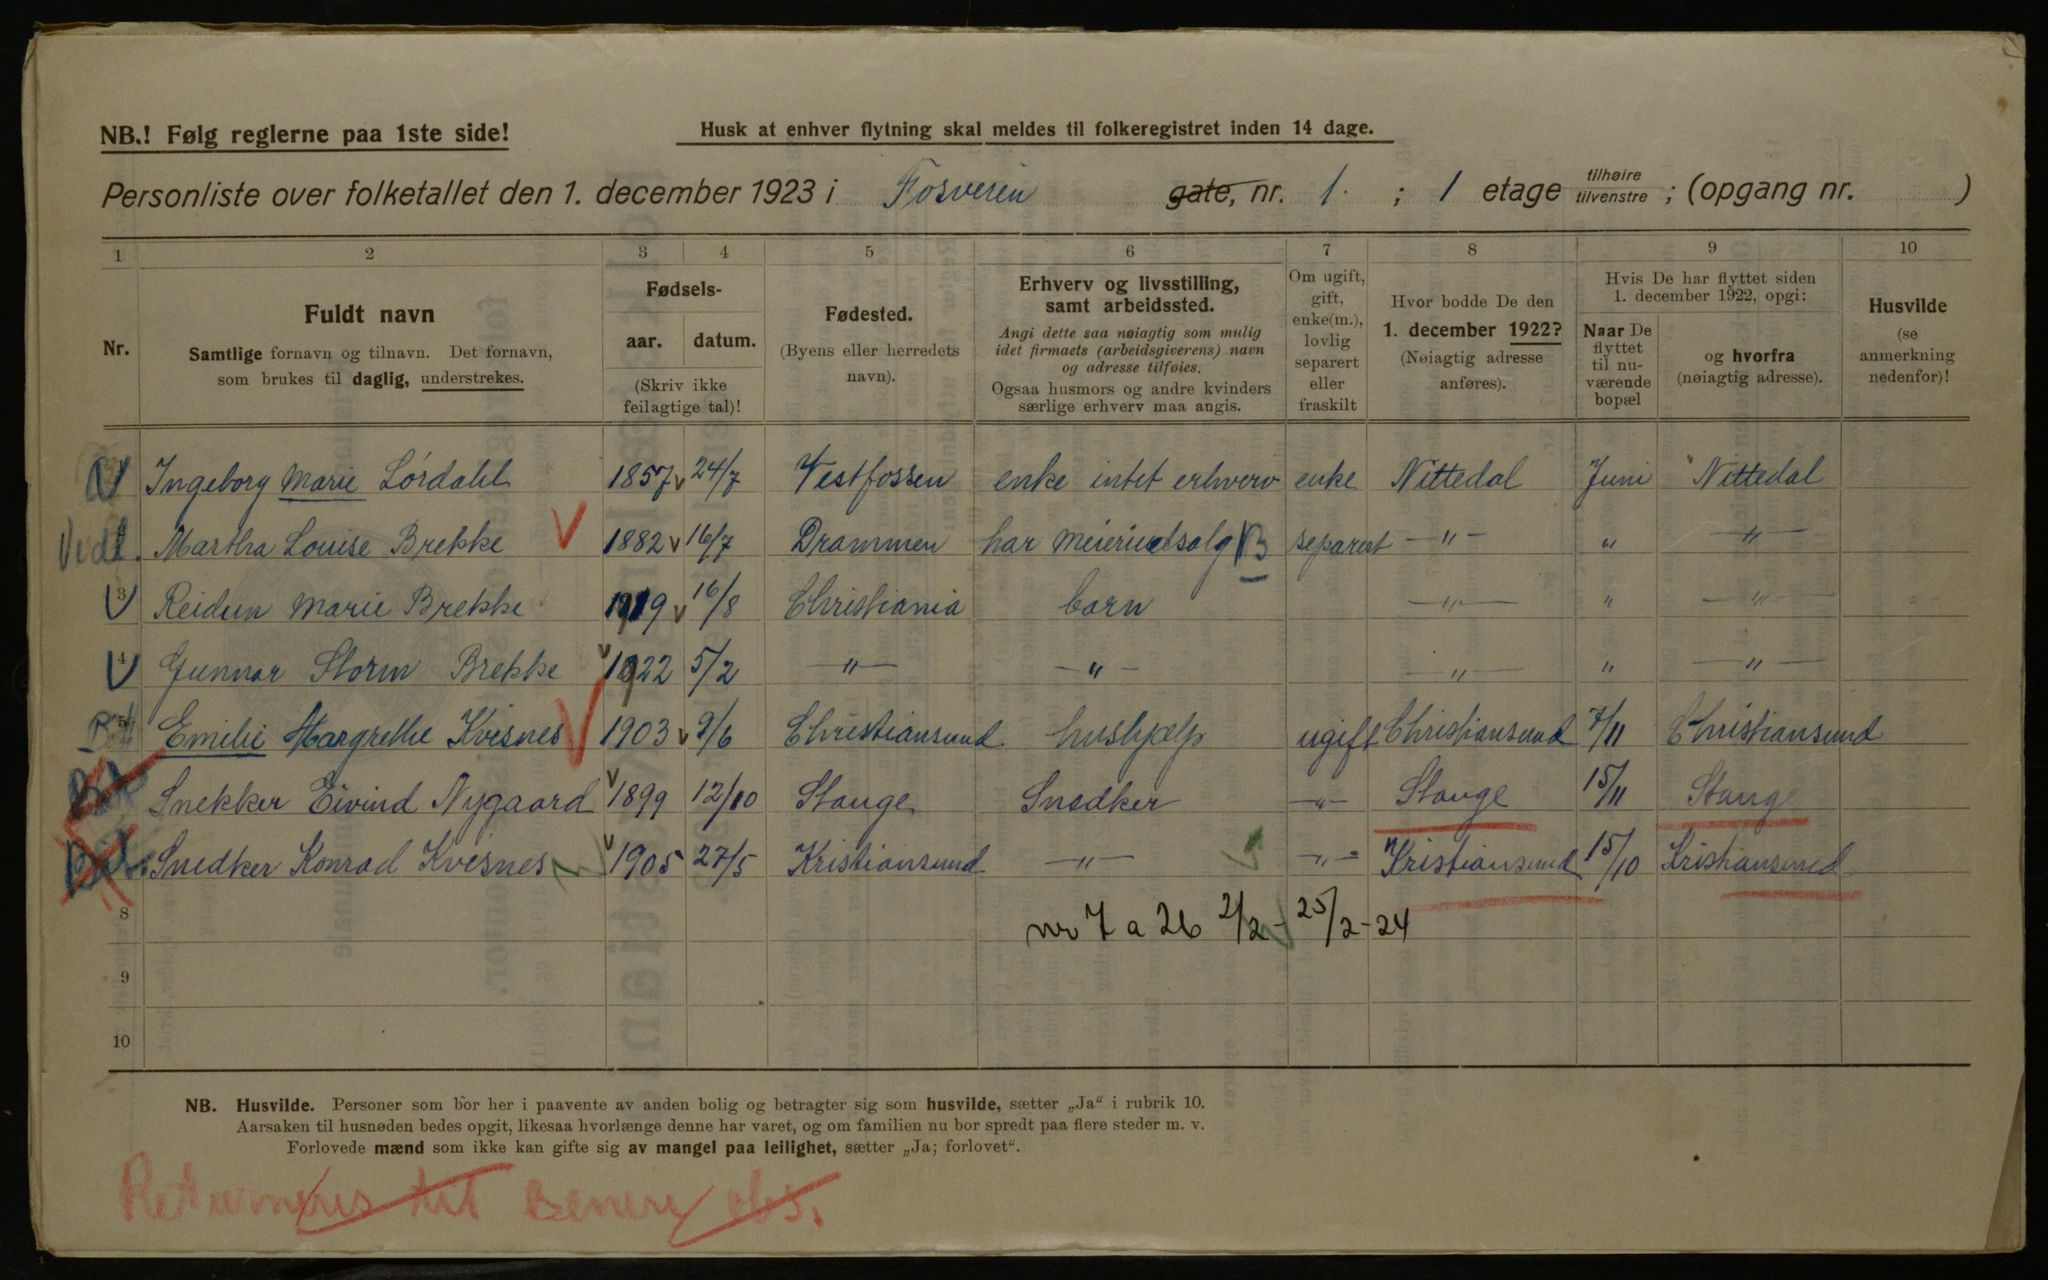 NB.! Følg reglerne paa 1ste side!
Husk at enhver flytning skal meldes til folkeregistret inden 14 dage.
Personliste over folketallet den 1. december 1923 i Fosveien gate, nr. 1. ; 1 etage tilhøire tilvenstre ; (opgang nr. )
1 2 3 4 5 6 7 8 9 10
Nr.
Fuldt navn
Samtlige fornavn og tilnavn. Det fornavn,
som brukes til daglig, understrekes.
Fødsels-
aar. datum.
(Skriv ikke
feilagtige tal)!
Fødested.
(Byens eller herredets
navn).
Erhverv og livsstilling,
samt arbeidssted.
Angi dette saa nøiagtig som mulig
idet firmaets (arbeidsgiverens) navn
og adresse tilføies.
Ogsaa husmors og andre kvinders
særlige erhverv maa angis.
Om ugift,
gift,
enke(m.),
lovlig
separert
eller
fraskilt
Hvor bodde De den
1. december 1922?
(Nøiagtig adresse
anføres).
Hvis De har flyttet siden
1. december 1922, opgi:
Naar De
flyttet
til nu-
værende
bopæl
og hvorfra
(nøiagtig adresse).
Husvilde
(se
anmerkning
nedenfor)!
Ingeborg Marie Lørdahl 1857 24/7 Vestfossen enke intet erhverv enke Nittedal Juni Nittedal
2 Martha Louise Brekke 1882 16/7 Drammen har meieriutsalg B separert — " — " — " —
3 Reidun Marie Brekke 1919 16/8 Christiania barn — " — " — " —
4 Gunnar Storm Brekke 1922 5/2 — " — — " — — " — " — " —
5 Emilie Margrethe Kvisnes 1903 9/6 Christiansund hushjælp ugift Christiansund 7/11 Christiansund
Snekker Eivind Nygaard 1899 12/10 Stange Snedker — " — Stange 15/11 Stange
Snedker Konrad Kvisnes 1905 27/5 Kristiansund — " — — " — Kristiansund 15/10 Kristiansund
8 nr 7 a 26 2/2 - 25/2-24
9
10
NB. Husvilde. Personer som bor her i paavente av anden bolig og betragter sig som husvilde, sætter „Ja“ i rubrik 10.
Aarsaken til husnøden bedes opgit, likesaa hvorlænge denne har varet, og om familien nu bor spredt paa flere steder m. v.
Forlovede mænd som ikke kan gifte sig av mangel paa leilighet, sætter „Ja; forlovet“.
Returneres til